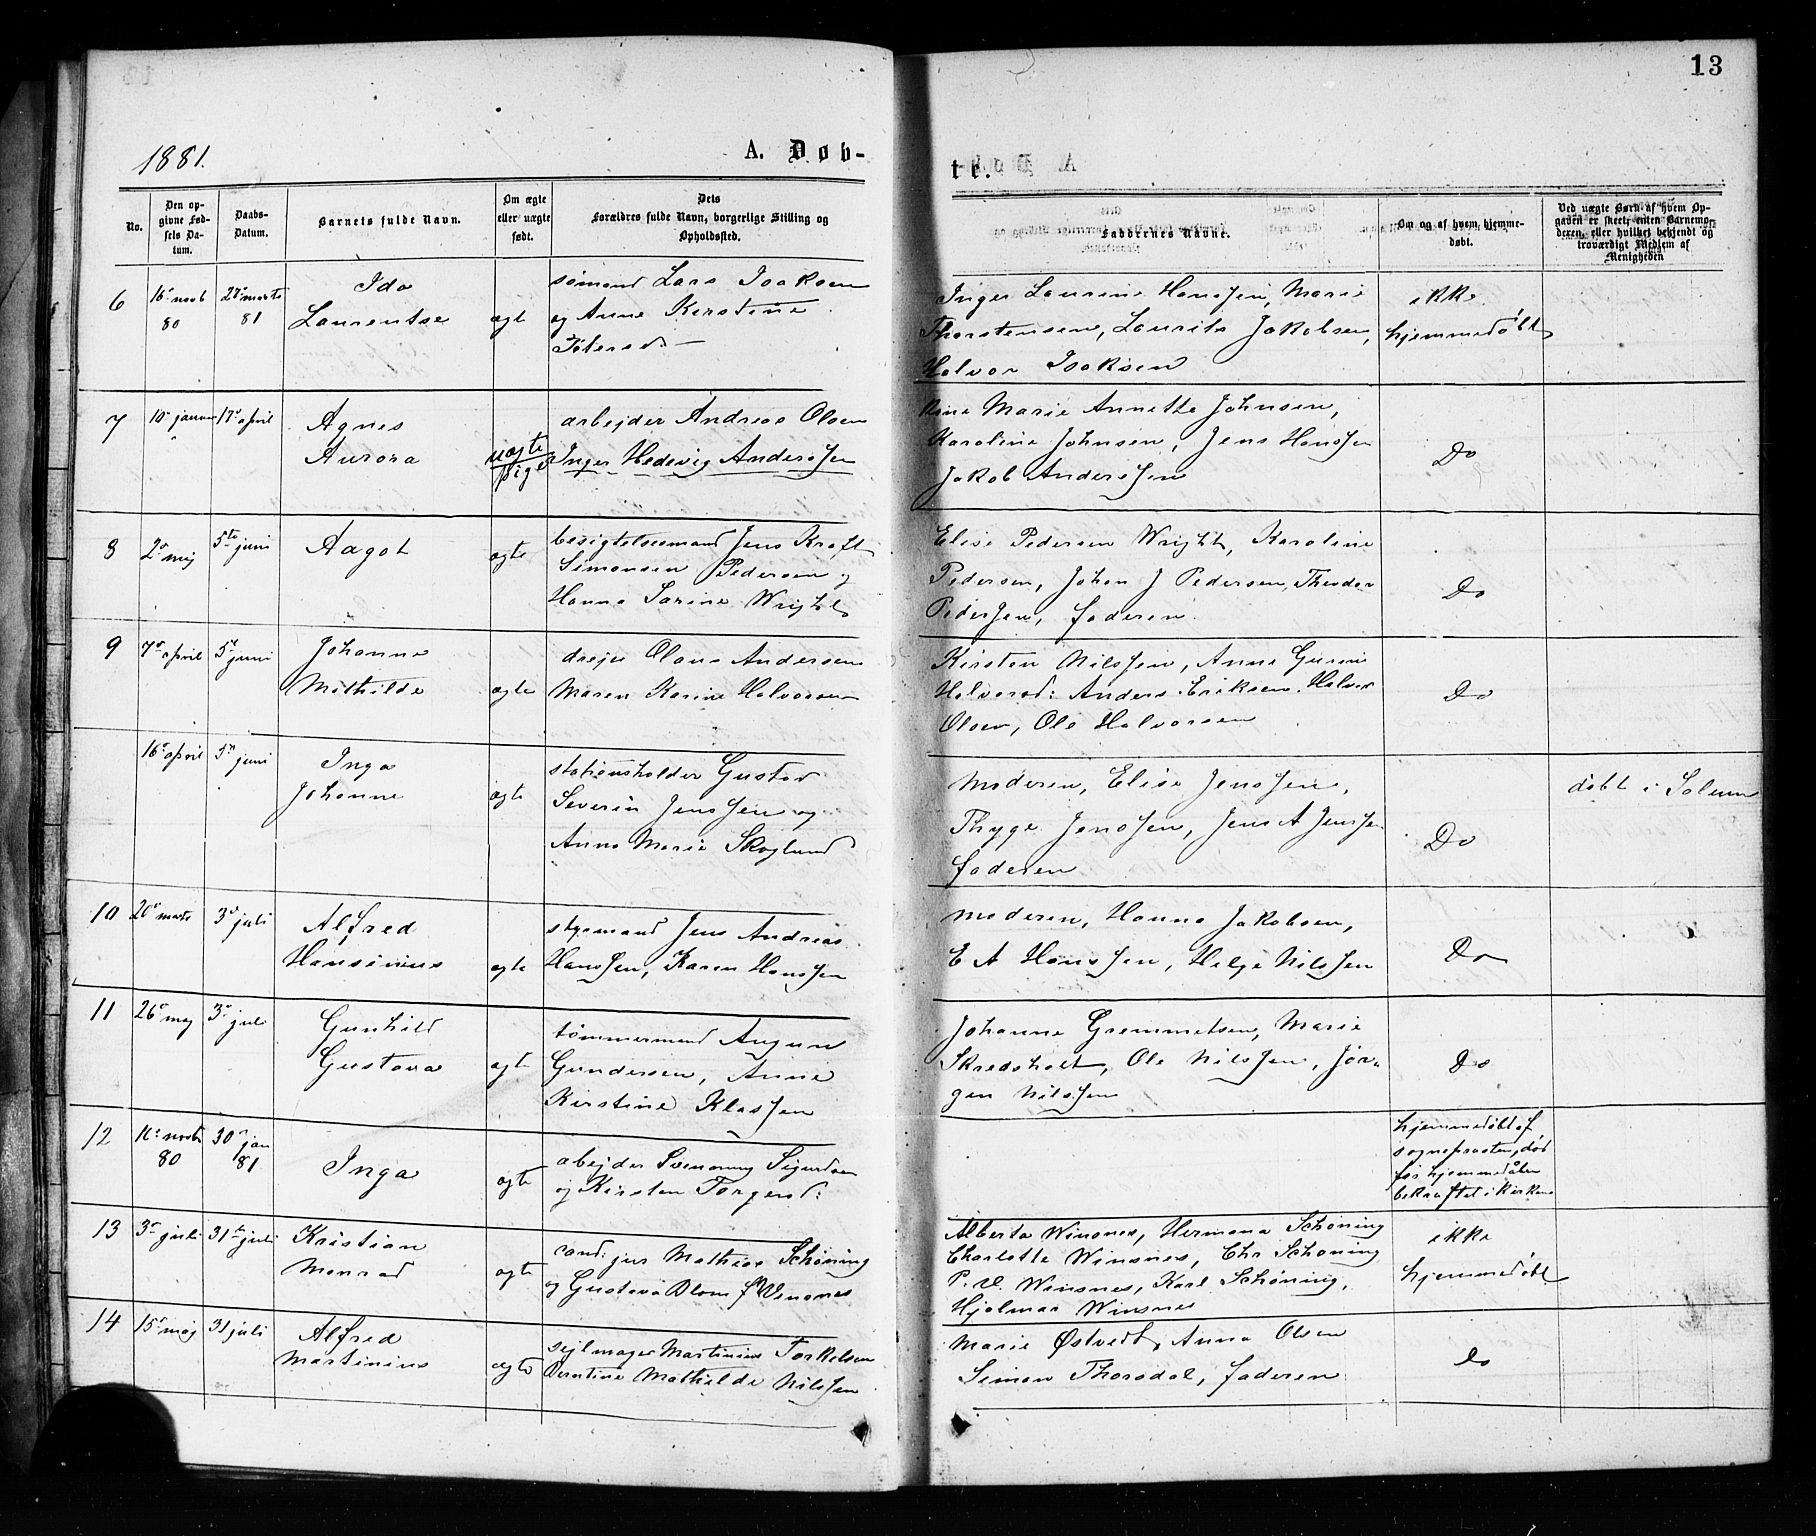 13
1881.
A. Døb-
te.
No.
Den op-
givne Fød-
sels Da-
tum.
Daabs-
Datum.
Barnets fulde Navn.
Om ægte
eller uægte
født.
Dets
Forældres fulde Navn, borgerlige Stilling og
Opholdssted.
Faddernes Navne.
Om og af hvem hjemme-
døbt.
Ved uægte Børn af hvem Op-
gaven er skeet, enten Barnemo-
deren, eller hvilket bekjendt og
troværdigt Medlem af
Menigheden
6
16 novb
80
marts
81
Ida
Laurentse
ægte
sømand Lars Isaksen
og Anne Kirstine
Inger Laurine Hanssen, Marie
Thorstensen, Laurits Jakobsen,
Halvor Isaksen
ikke
hjemmedøbt
7
10 januar
17 april
Agnes
Aurora
uægte
pige
arbejder Andreas Olsen
Inger Hedevig Anderssen
Marie Annette Johnsen,
Karoline Johnsen, Jens Hanssen
Jakob Anderssen
Do
8
2 maj
5te juni
Aagot
ægte
besigtelsesmand Jens Kraft
Simonsen Pedersen og
Hanna Sarine Wright
Elise Pedersen Wright, Karoline
Pedersen, Johan J Pedersen, Theodor
Pederssen, faderen
Do
9
7 april
5 juni
Johanne
Mathilde
ægte
drejer Olaus Andersen
Maren Karine Halvorsen
Kirsten Nilssen, Anne Gurine
Halvorsd: Anders Eriksen, Halvor
Olsen, Ole Halvorsen
Do
16 april
5 juni
Inga
Johanne
ægte
stationsholder Gustav
Severin Jenssen og
Anna Marie Skoglund
moderen, Elise Jenssen,
Thyge Jenssen, Jens A Jenssen
faderen
Do
døbt i Solum
10
20 marts
3 juli
Alfred
Hansinius
ægte
styrmand Jens Andreas
Hanssen, Karen Hanssen
moderen, Hanna Jakobsen,
E A Hanssen, Helge Nilssen
Do
11
26 maj
3 juli
Gunhild
Gustava
ægte
tømmermand Augun
Gundersen, Anne
Kirstine Klassen
Johanne Gremmetsen, Marie
Skredsholt, Ole Nilssen, Jør-
gen Nilssen
Do
12
novb
80
30 jan
81
Inga
ægte
arbejder Svenning Sigurdsen
og Kirsten Torgersd:
hjemmedøbt af
sognepresten, død
før hjemmedåben
bekræftet i kirken
13
3 juli
31te juli
Kristian
Monrad
ægte
cand: jur Mathias Schøning
og Gustava Blom f Winsnes
Alberta Winsnes, Hermana Schøning
Charlotte Winsnes, Chr Schøning
P. V. Winsnes, Karl Schøning,
Hjalmar Winsnes
ikke
hjemmedøbt
14
15 maj
31 juli
Alfred
Martinius
ægte
sejlmager Martinius Torkelsen
Berntine Mathilde Nilssen
Marie Østvedt, Anna Olsen
Simon Thorsdal, faderen
do